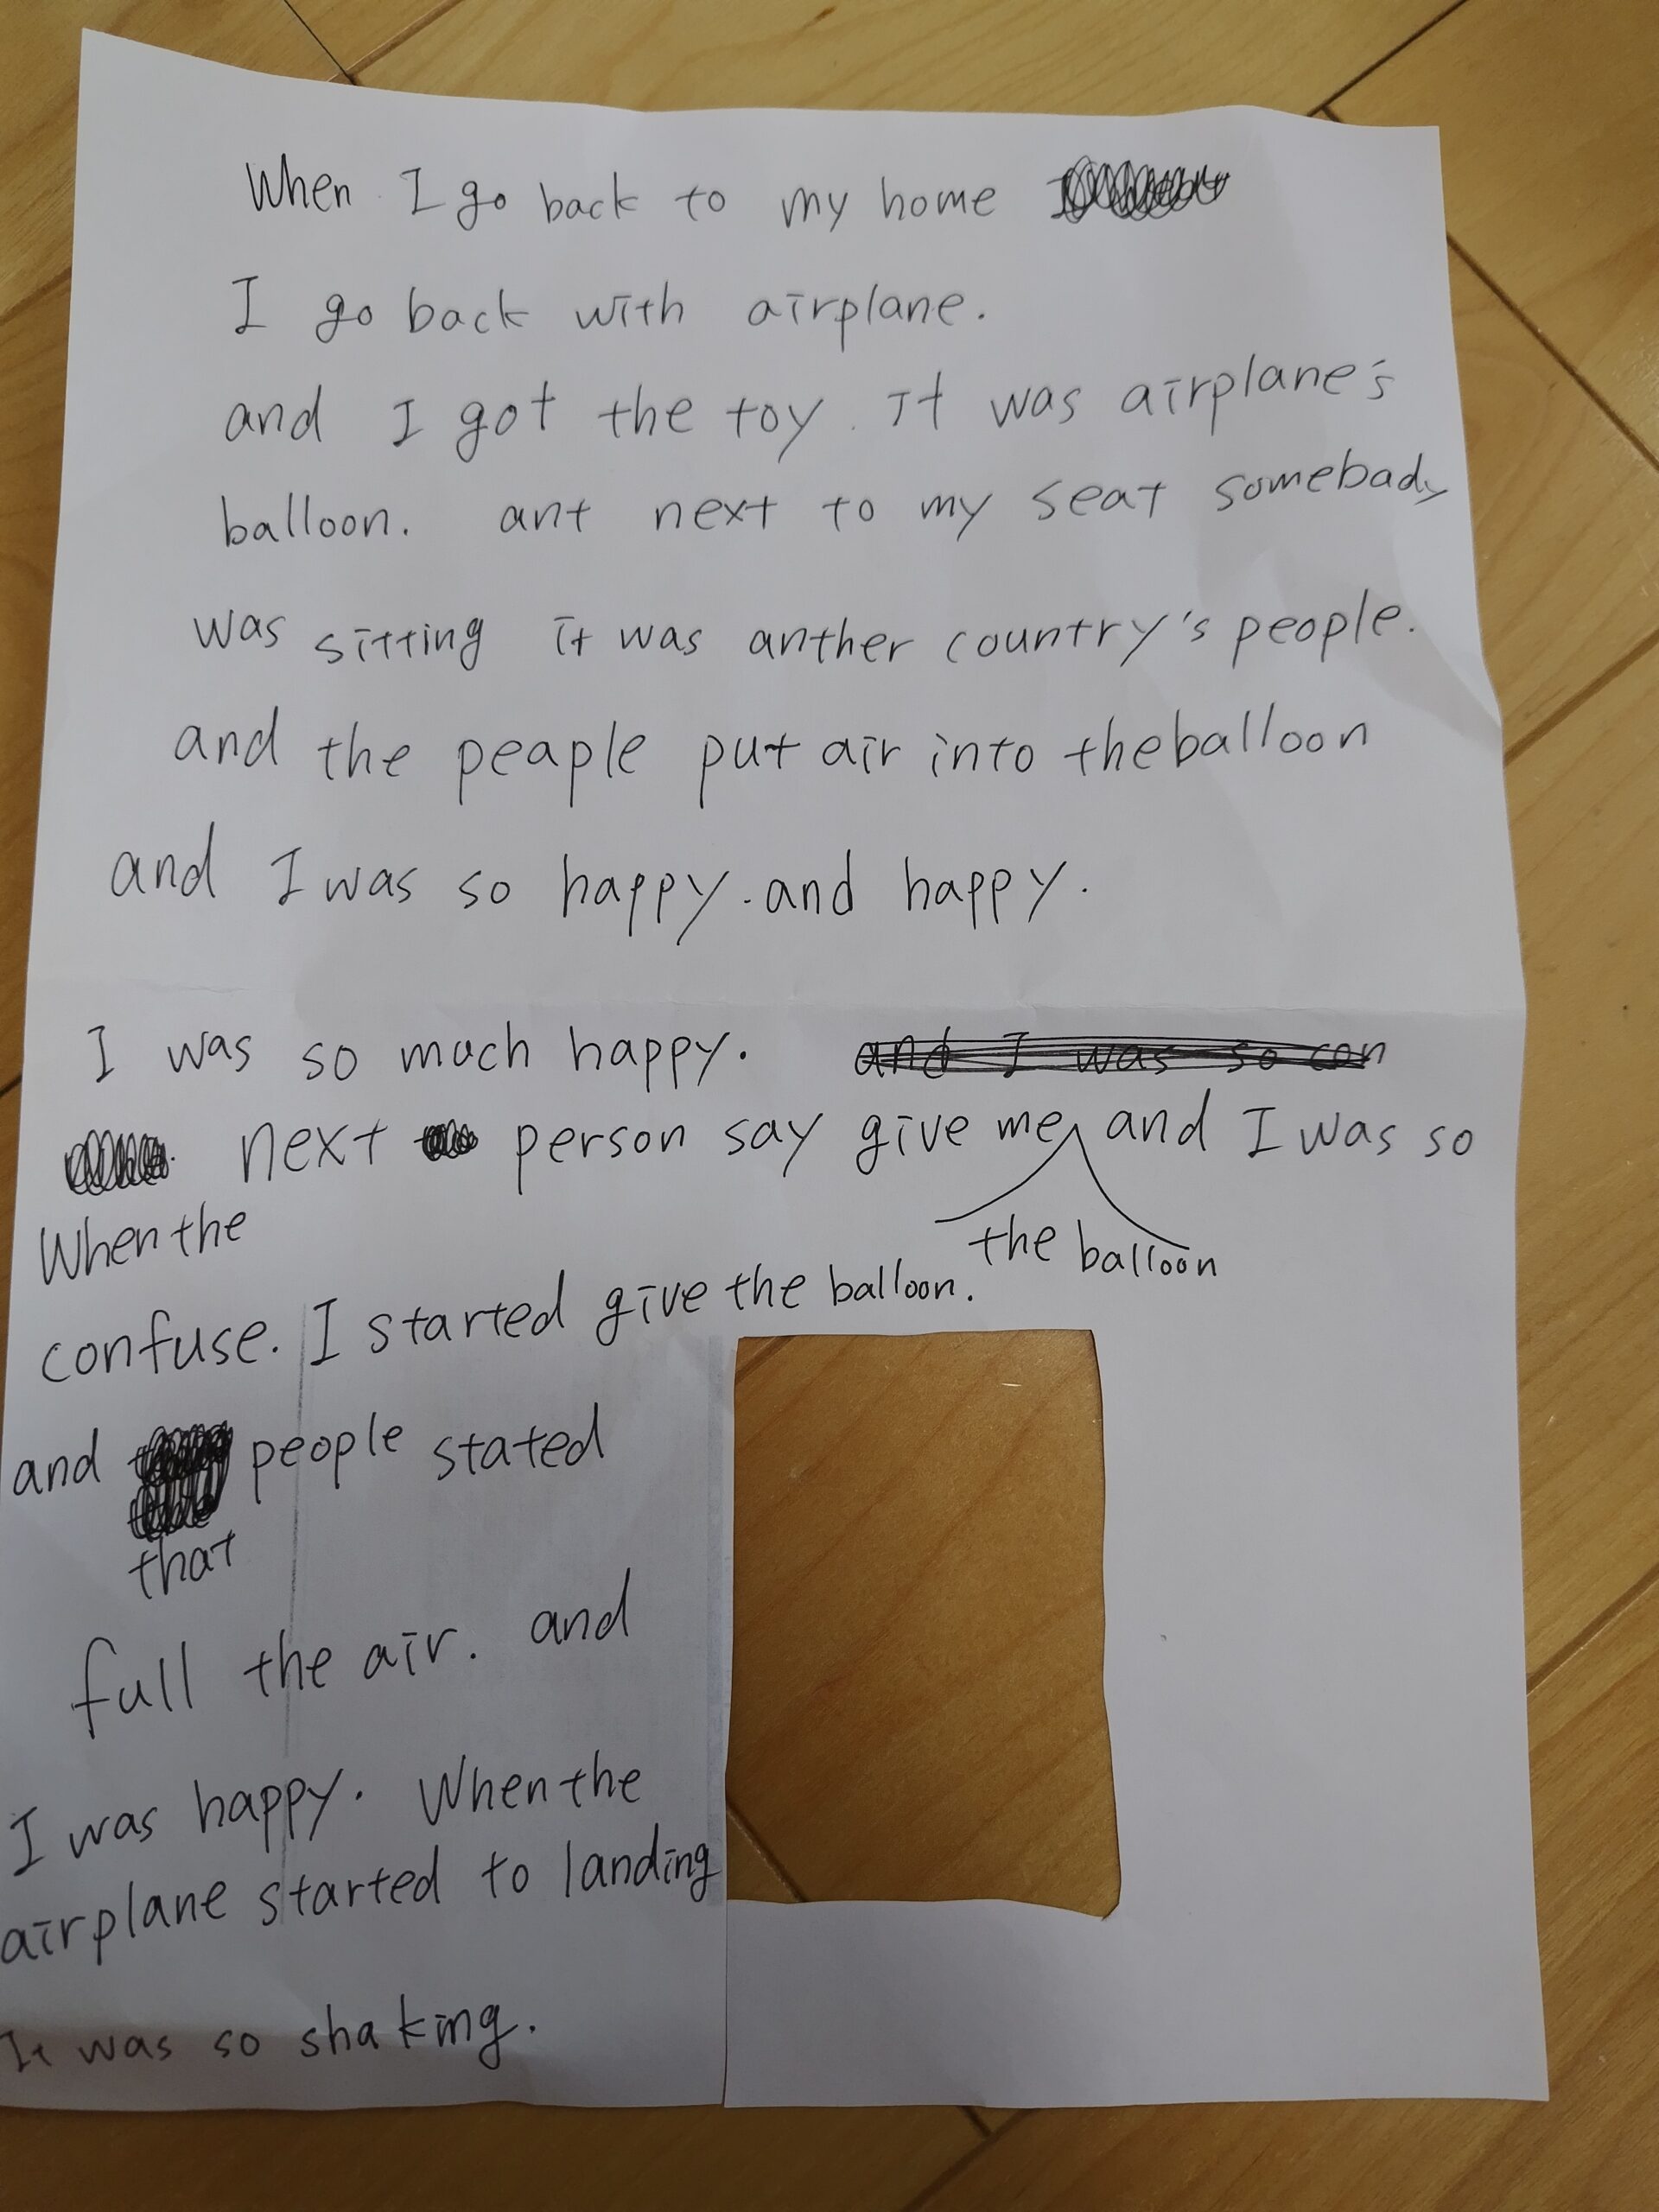 When I go back to my home
I go back with airplane.
and I got the toy. It was airplane's
balloon. ant next to my seat somebady
was sitting it was anther country's people.
and the peaple put air into the balloon
and I was so happy. and happy.
I was so much happy. and I was so con
next person say give me, and I was so
the balloon
When the
confuse. I started give the balloon.
and people stated
that
full the air. and
I was happy. When the
airplane started to landing
It was so shaking.